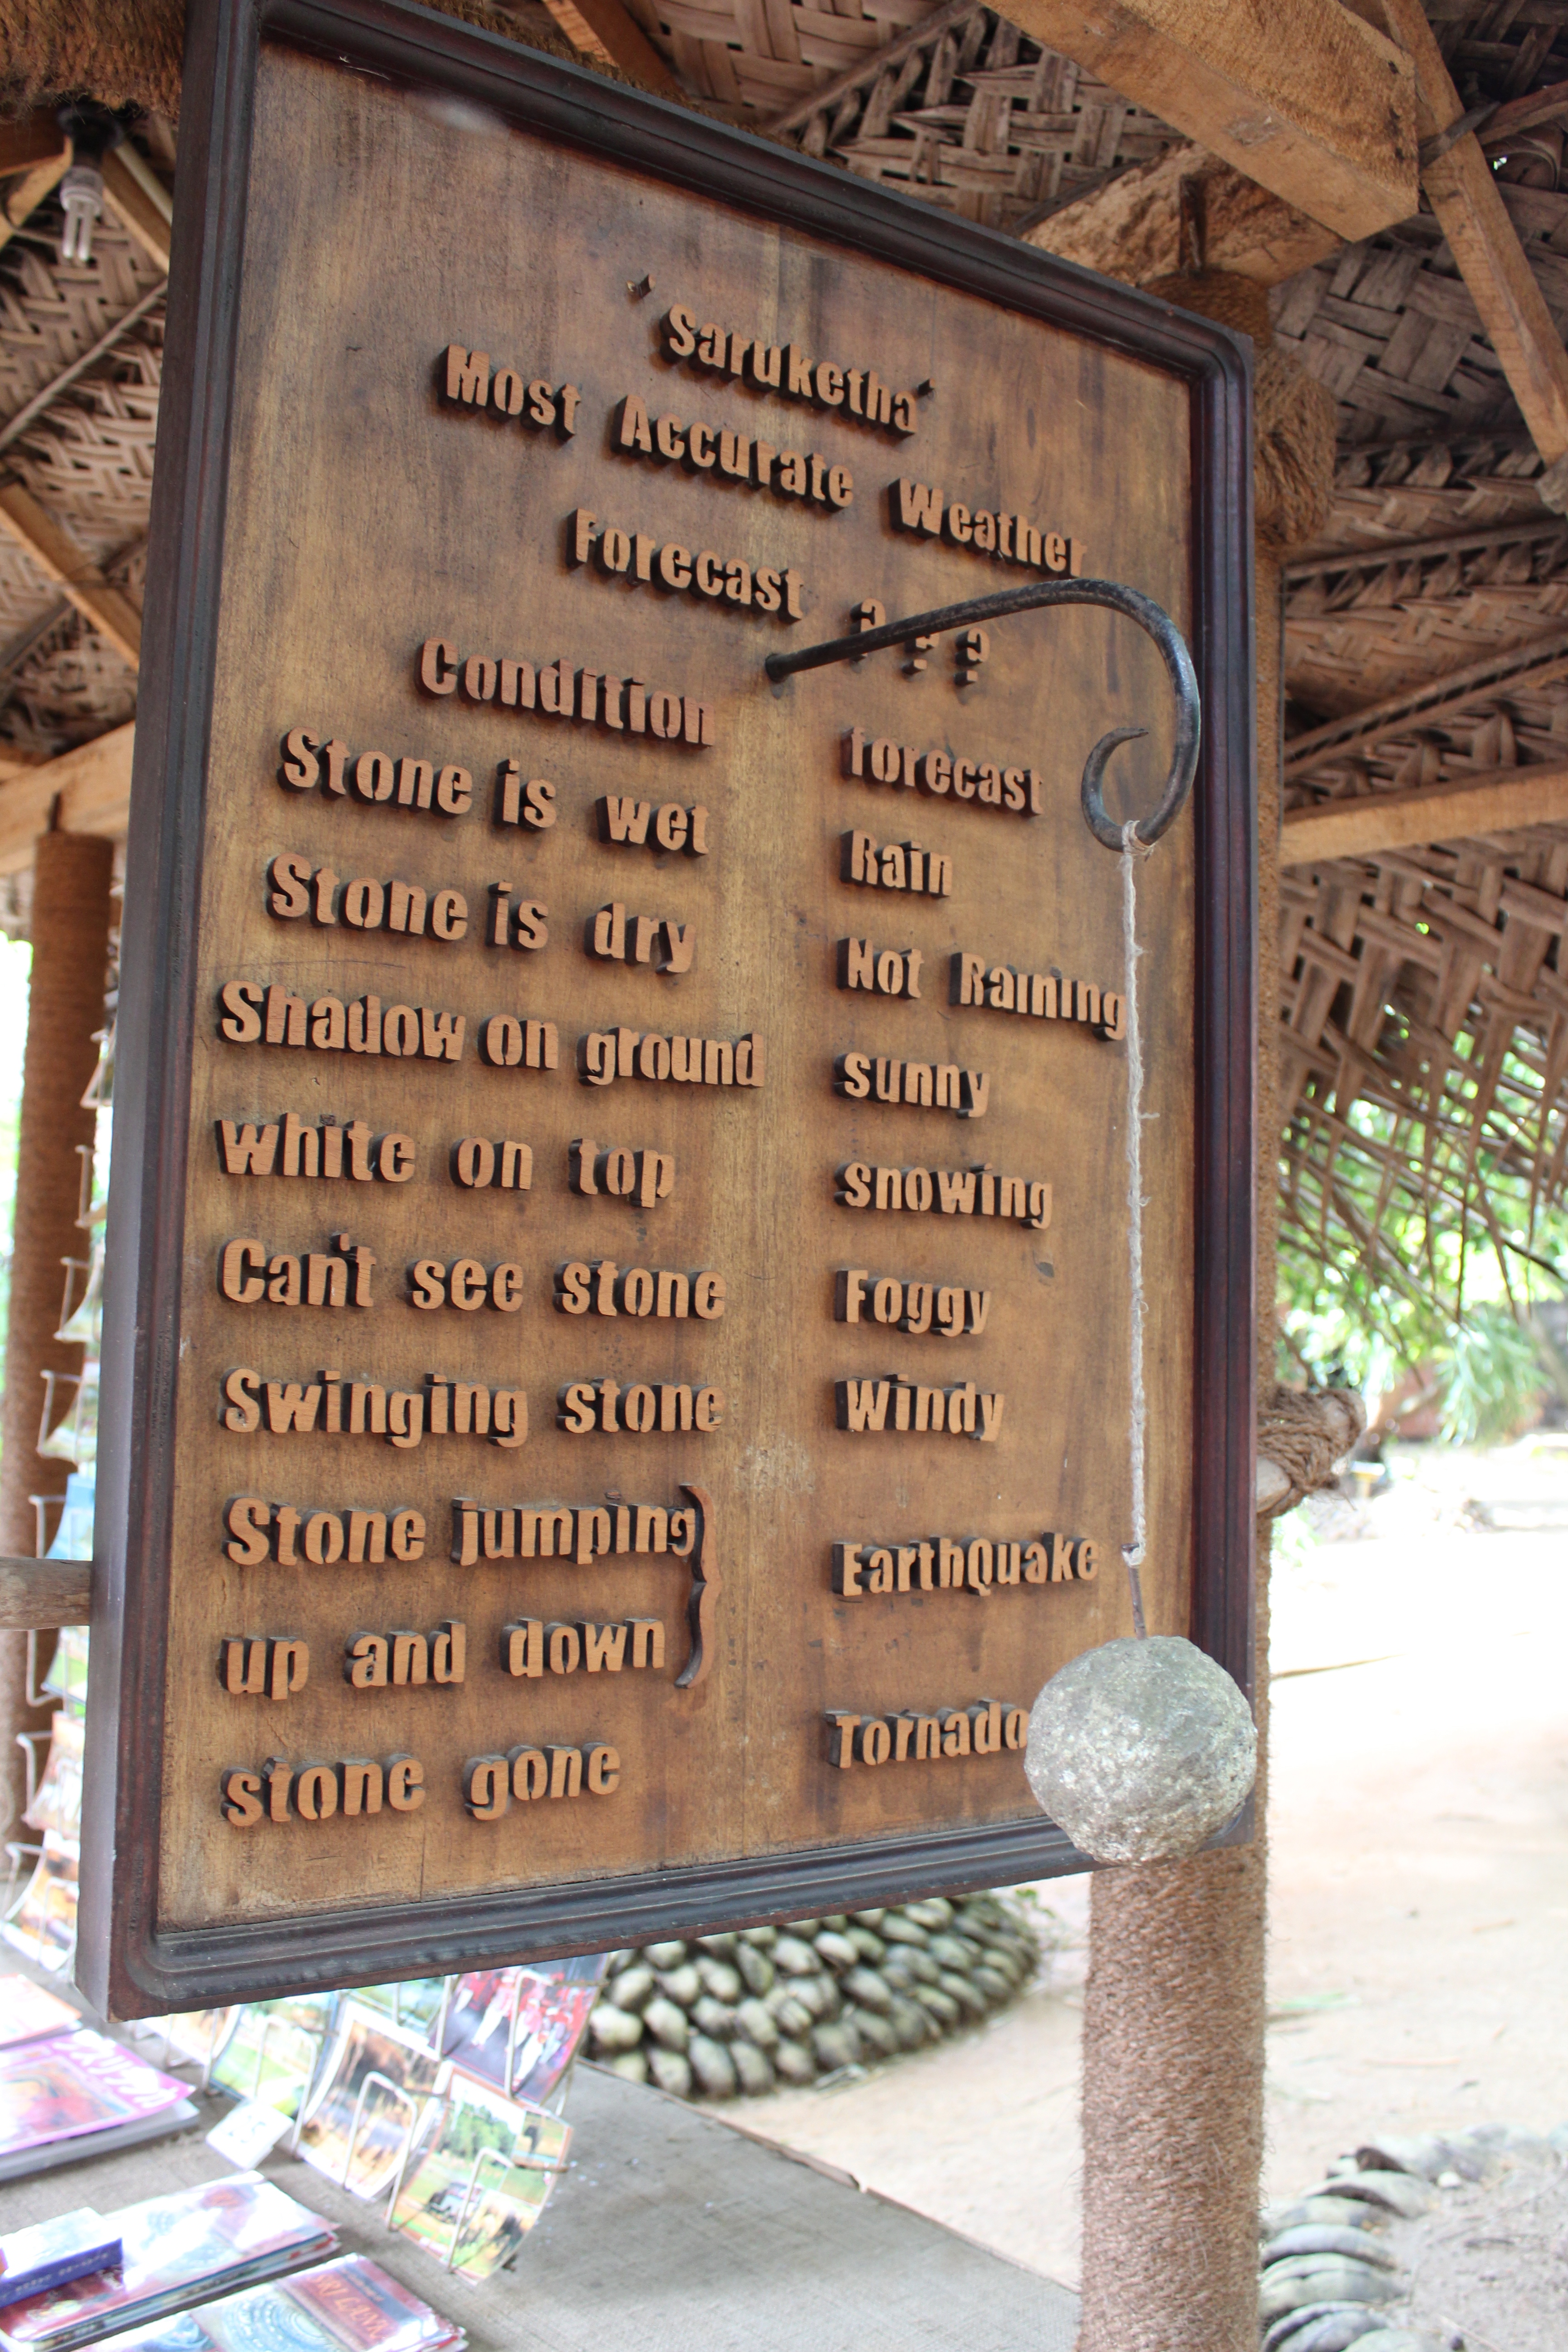 'Saruketha'
Most Accurate Weather
Forecast ? ? ?
Condition forecast
Stone is wet Rain
Stone is dry Not Raining
Shadow on ground sunny
white on top snowing
Can't see stone Foggy
Swinging stone Windy
Stone jumping
up and down } EarthQuake
stone gone Tornado